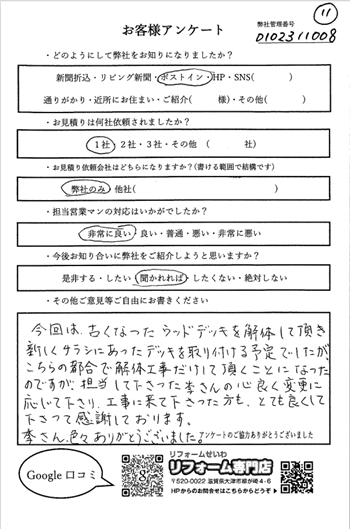 11
お客様アンケート
弊社管理番号
D102311008
・どのようにして弊社をお知りになりましたか?
新聞折込・リビング新聞・ポストイン・HP・SNS( )
通りがかり・近所にお住まい・ご紹介( 様)・その他( )
・お見積りは何社依頼されましたか?
1社・2社・3社・その他 ( 社)
・お見積り依頼会社はどちらになりますか?(書ける範囲で結構です)
弊社のみ・他社( )
・担当営業マンの対応はいかがでしたか?
非常に良い・良い・普通・悪い・非常に悪い
・今後お知り合いに弊社をご紹介しようと思いますか?
是非する・したい・聞かれれば・したくない・絶対しない
・その他ご意見等ご自由にお書きください
今回は、古くなった ウッドデッキを解体して頂き
新しくチラシにあったデッキを取り付ける予定でしたが、
こちらの都合で解体工事だけして頂くことになった
のですが、担当して下さった李さんの心良く変更に
応じて下さり、工事に来て下さった方も、とても良くして
下さって感謝しております。
李さん、色々ありがとうございました。
アンケートのご協力ありがとうございました
Google口コミ
リフォームせいわ
リフォーム専門店
〒520-0022 滋賀県大津市柳が崎4-6
HPからのお問合せはこちらからどうぞ